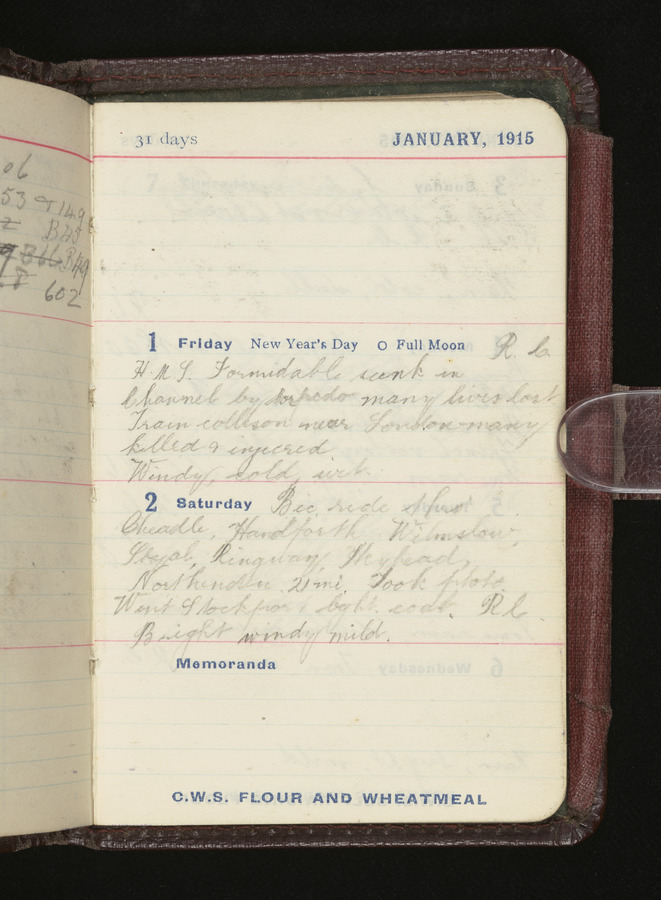 06
53 & 149
BAD
602
31 days
JANUARY, 1915
1 Friday New Year's Day O Full Moon R. L.
H.M.S. Formidable sunk in
Channel by torpedo many lives lost
Train collison near London many
killed & injured.
Windy, cold, wet.
2 Saturday Bic. ride thro'
Cheadle, Handforth, Wilmslow,
Styal, Ringway, Shyhead,
Northenden 21 mi. Took photo.
Went Stockport, bght. coat. R L.
Bright windy mild.
Memoranda
C.W.S. FLOUR AND WHEATMEAL